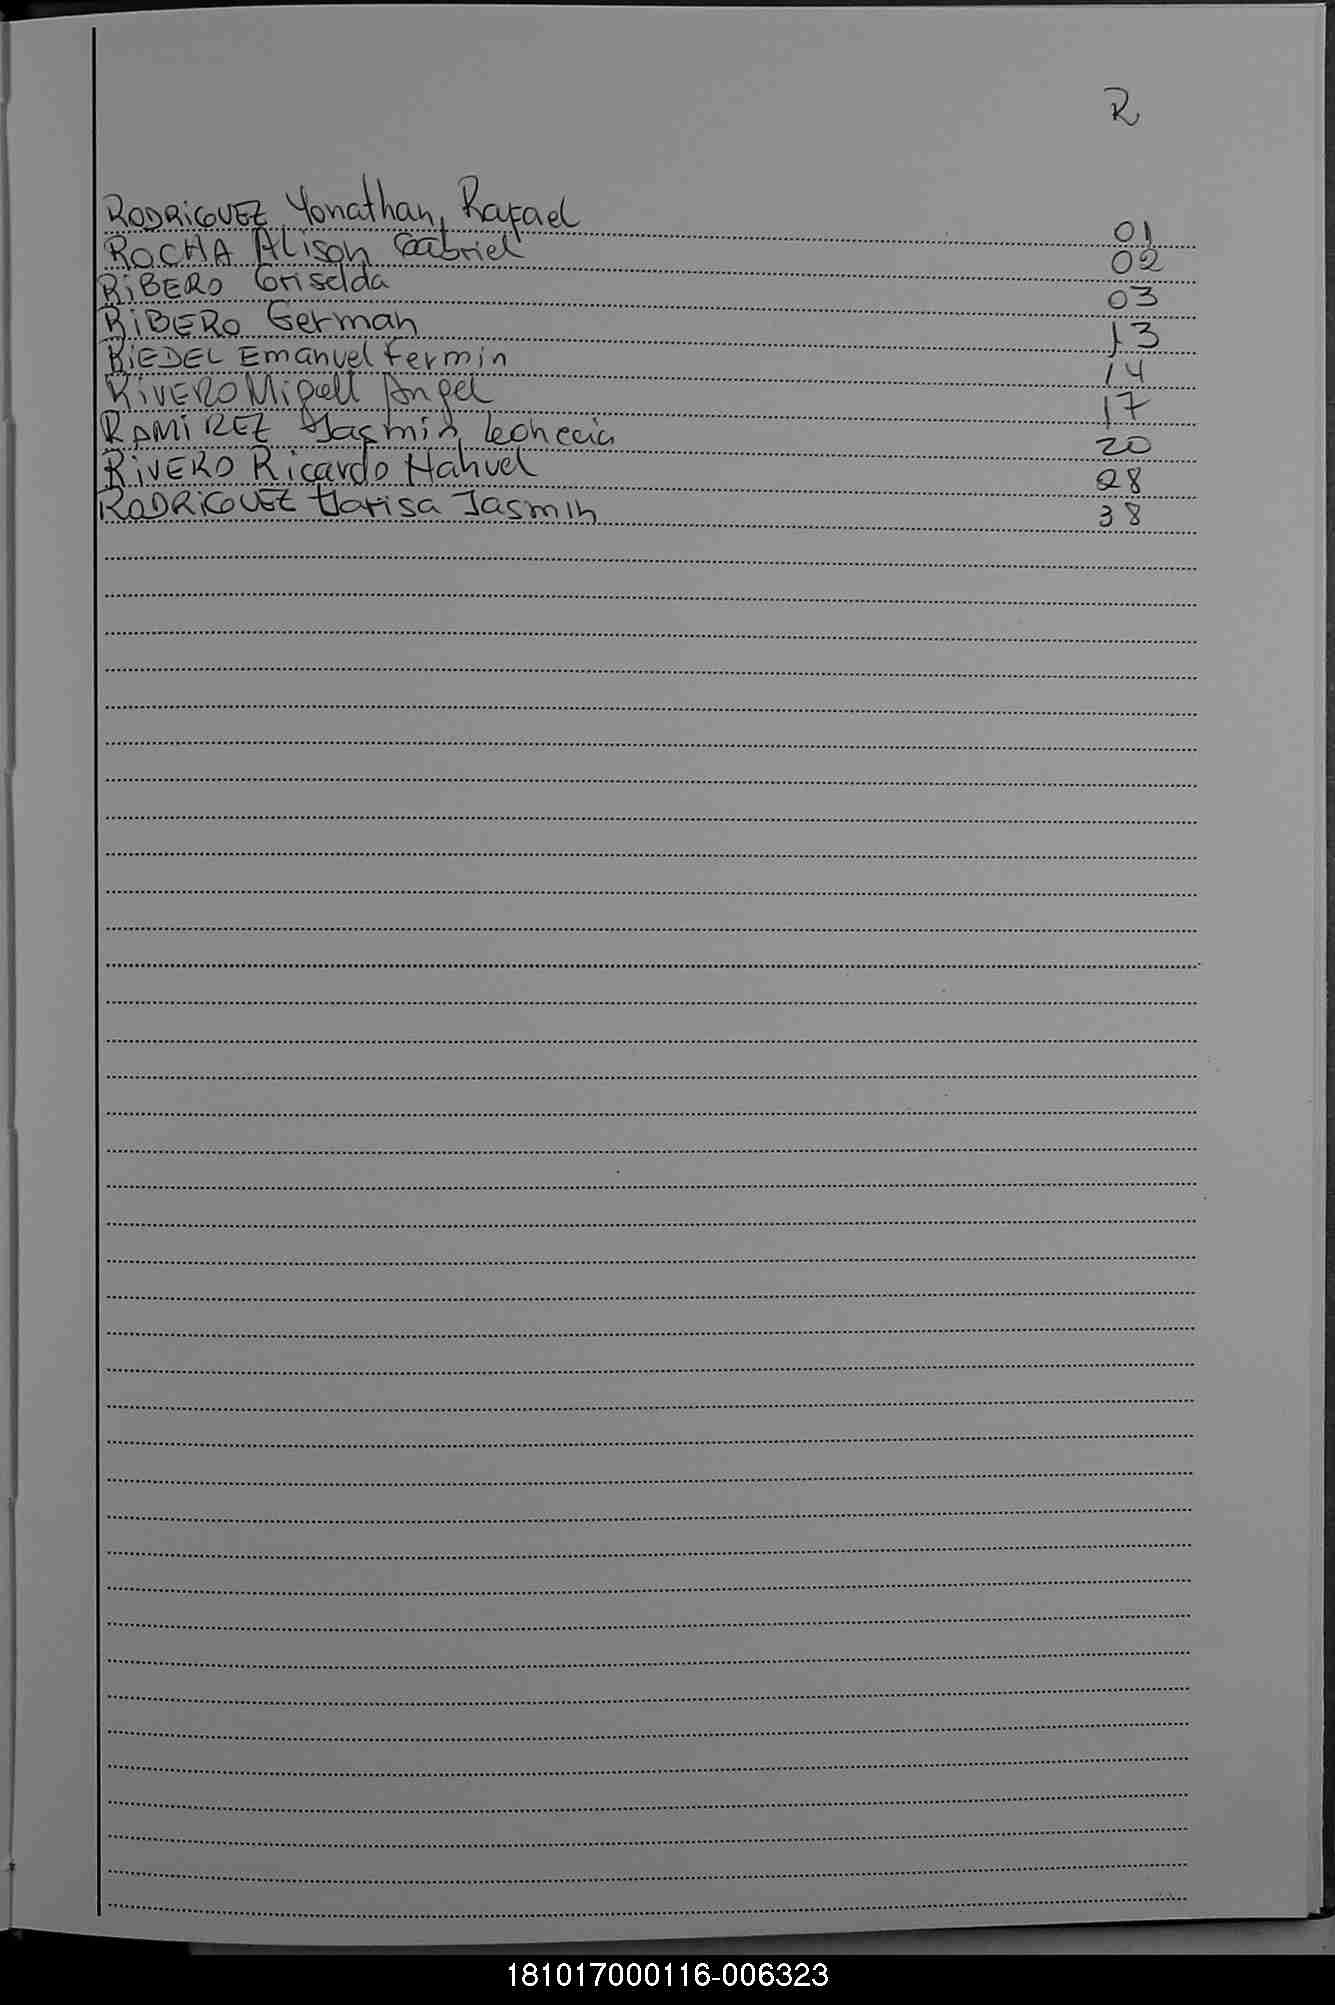 R
RODRIGUEZ Yonathan, Rafael 01
ROCHA Alison Gabriel 02
RIBERO Griselda 03
RIBERO German 13
RIEDEL Emanuel Fermin 14
RIVERO Miguel Angel 17
RAMIREZ Yasmin 20
RIVERO Ricardo Nahuel 28
RODRIGUEZ Jasmin 38
181017000116-006323